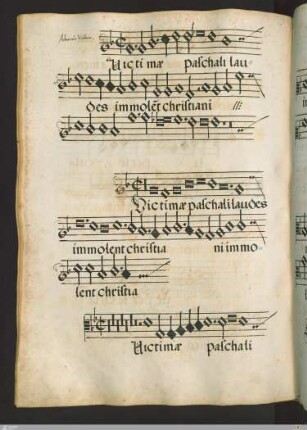 Victimæ paschali lau
des immolẽt christiani
Victimæ paschali laudes
immolent christia ni immo-
lent christia
Victimæ paschali